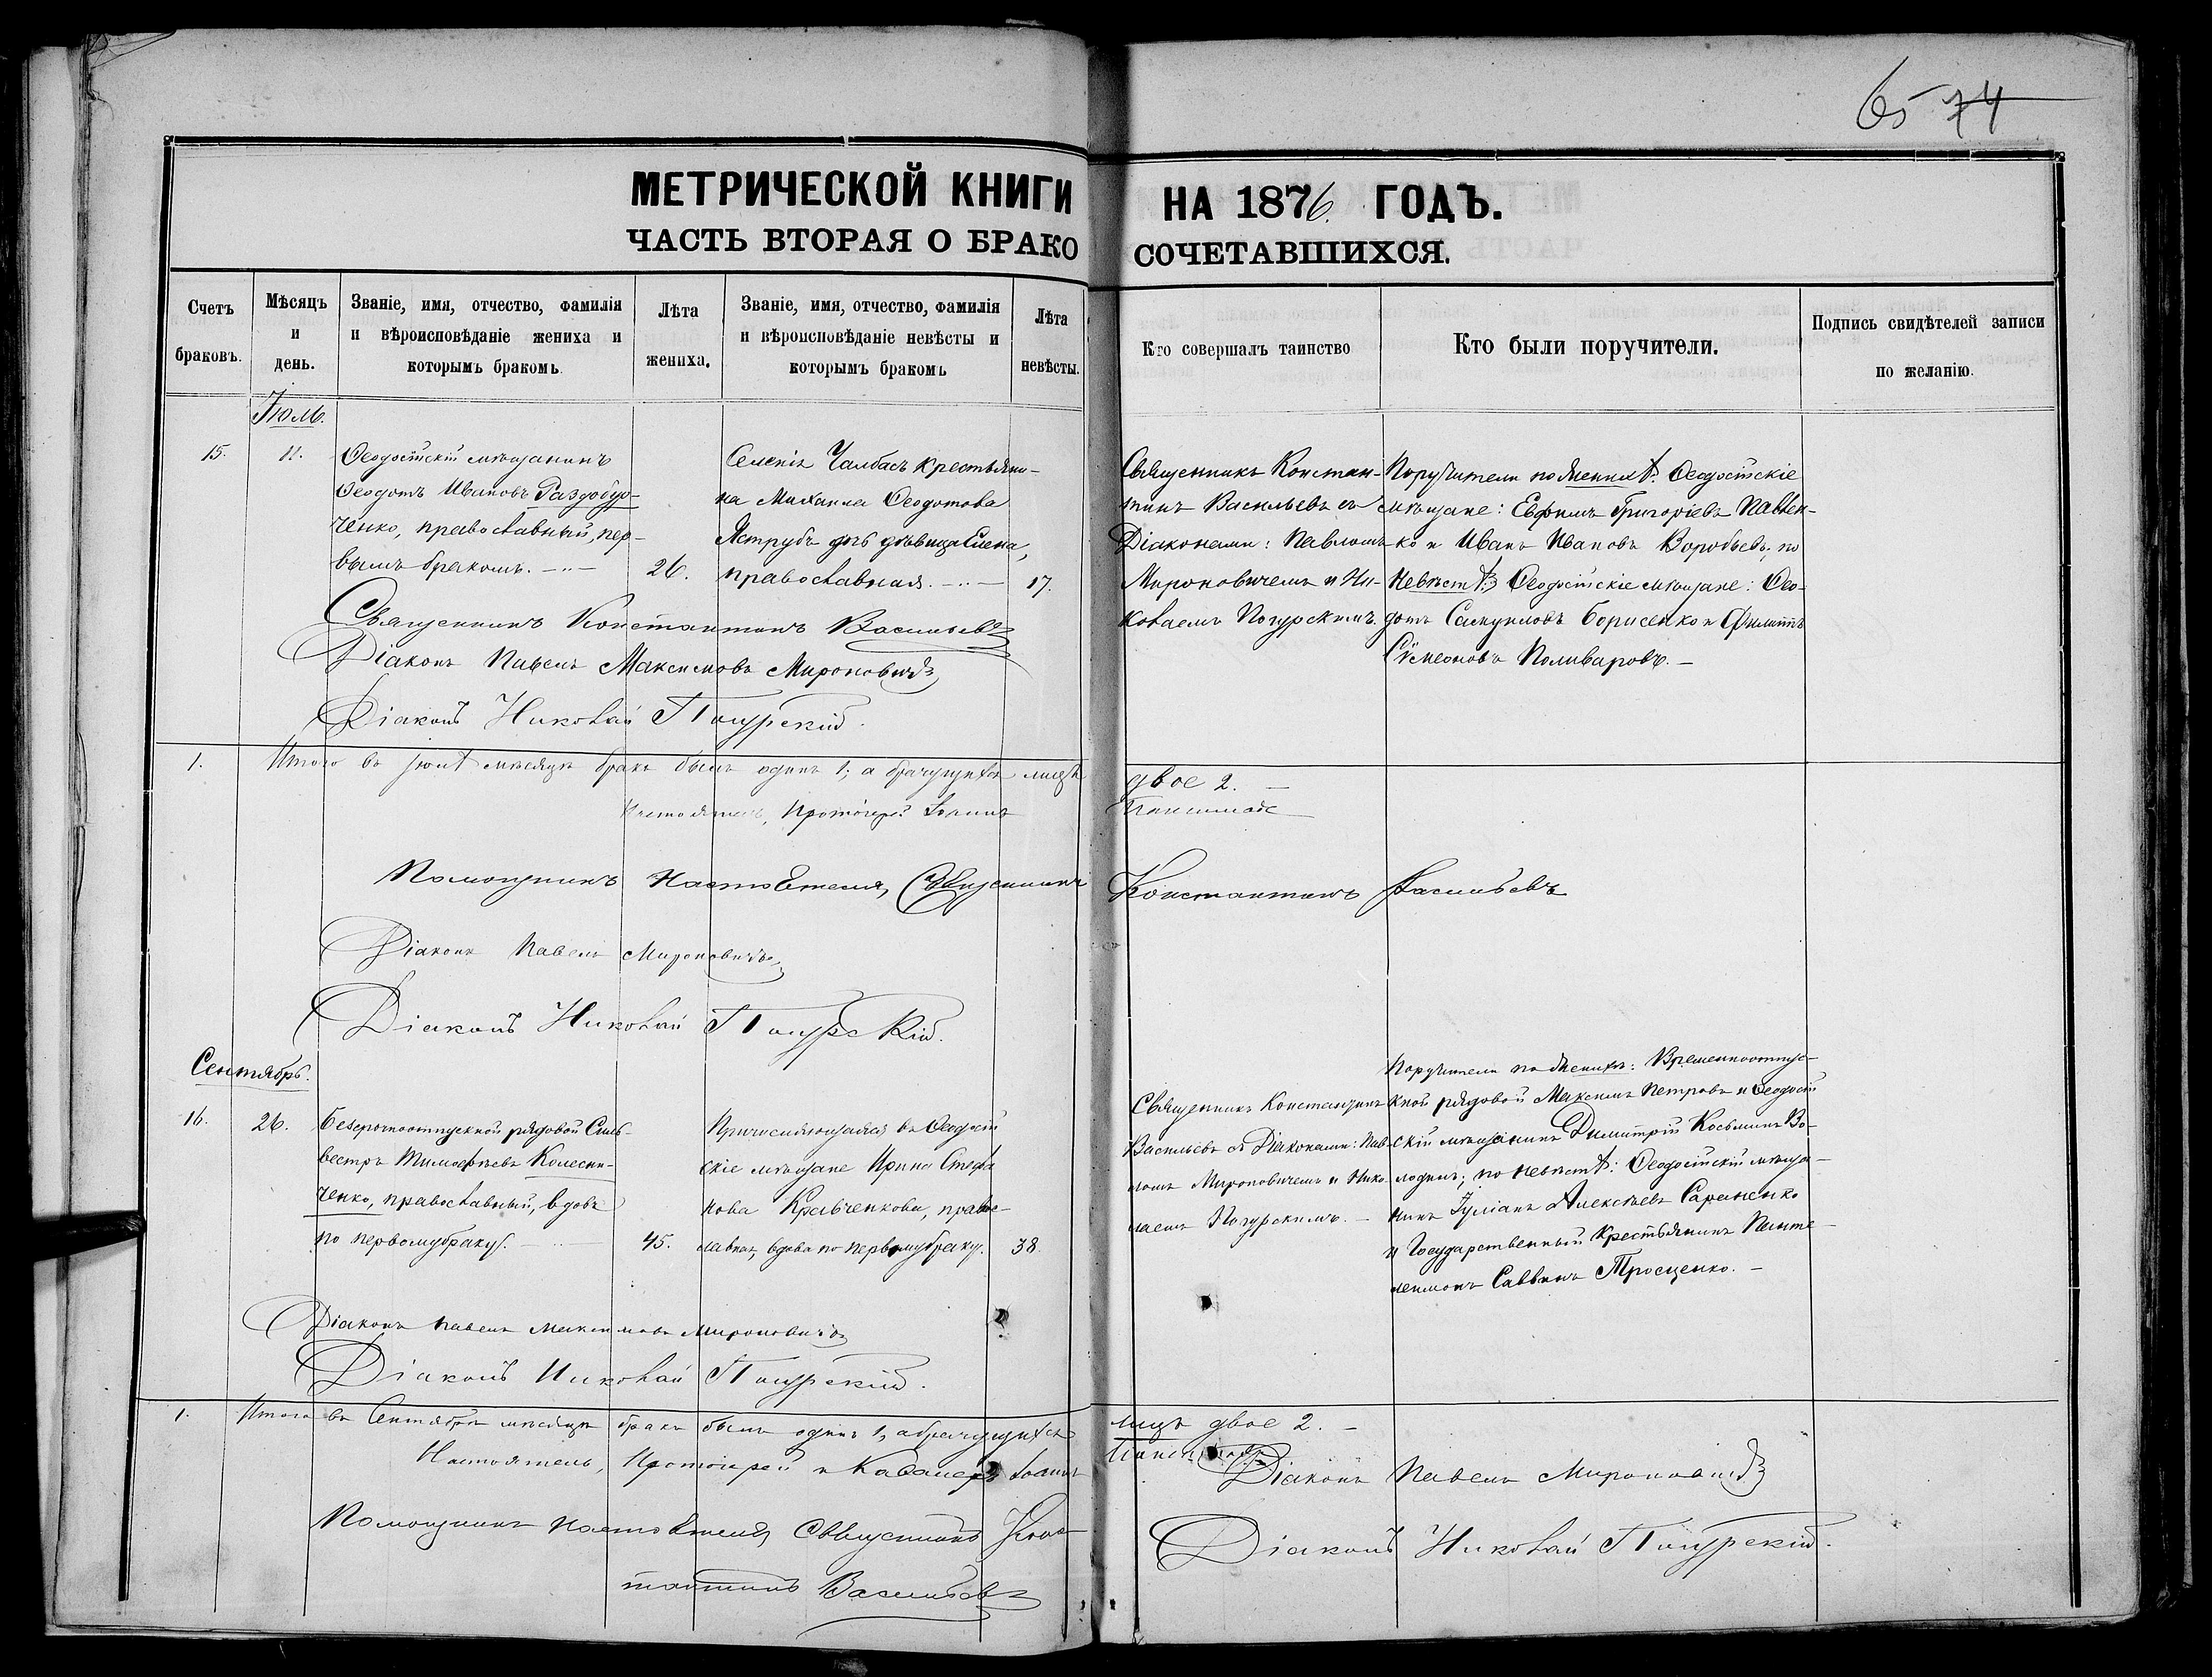 65 74
МЕТРИЧЕСКОЙ КНИГИ НА 1876. ГОДЪ.
ЧАСТЬ ВТОРАЯ О БРАКОСОЧЕТАВШИХСЯ.
Счетъ браковъ.
Мѣсяцъ и день.
Званіе, имя, отчество, фамилія и вѣроисповѣданіе жениха и которымъ бракомъ.
Лѣта жениха.
Званіе, имя, отчество, фамилія и вѣроисповѣданіе невѣсты и которымъ бракомъ
Лѣта невѣсты.
Кто совершалъ таинство
Кто были поручители.
Подпись свидѣтелей записи по желанію.
Іюль.
15.
11.
Ѳеодосійскій мѣщанинъ
Ѳеодотъ Ивановъ Раздобуд-
ченко, православный, пер-
вымъ бракомъ.
26.
Селенія Чалбасъ крестьяни-
на Михаила Ѳеодотова
Яструбъ дочь дѣвица Елена,
православная.
17.
Священникъ Констан-
тинъ Васильевъ съ
Діаконами: Павломъ
Мироновичемъ и Ни-
колаемъ Погурскимъ.
Поручители по женихѣ: Ѳеодосійскіе
мѣщане: Евфимъ Григоріевъ Павлен-
ко и Иванъ Ивановъ Воробьевъ; по
невѣстѣ: Ѳеодосійскіе мѣщане: Ѳео-
дотъ Самуиловъ Борисенко и Филиппъ
Сѵмеоновъ Поливаровъ.
Священникъ Константинъ Васильевъ
Діаконъ Павелъ Максимовъ Мироновичъ
Діаконъ Николай Погурскій.
1.
Итого въ Іюлѣ мѣсяцѣ бракъ былъ одинъ 1; а брачущихся лицъ двое 2.
Настоятель, Протоіерей Іоаннъ
Помощникъ Настоятеля, Священникъ Константинъ Васильевъ
Діаконъ Павелъ Мироновичъ
Діаконъ Николай Погурскій.
Сентябрь.
16.
26.
Безсрочноотпускной рядовой Силь-
вестръ Тимоѳѣевъ Колесни-
ченко, православный, вдовъ
по первому браку.
45.
Причисляющаяся въ Ѳеодосій
скіе мѣщане Ирина Стефа
нова Кравченкова, правос-
лавная, вдова по первому браку.
38.
Священникъ Константинъ
Васильевъ съ Діаконами: Пав-
ломъ Мироновичемъ и Нико-
лаемъ Погурскимъ.
Поручители по женихѣ: Временноотпус-
кной рядовой Максимъ Петровъ и Ѳеодосій
скій мѣщанинъ Димитрій Косьминъ Во-
лодинъ; по невѣстѣ: Ѳеодосійскій мѣща-
нинъ Іуліанъ Алексѣевъ Сараненко
и Государственный крестьянинъ Панте-
леимонъ Саввинъ Тросценко.
Діаконъ Павелъ Максимовъ Мироновичъ
Діаконъ Николай Погурскій.
1.
Итого въ Сентябрѣ мѣсяцѣ бракъ былъ одинъ 1, а брачущихся лицъ двое 2.
Настоятель, Протоіерей и Кавалеръ Іоаннъ
Помощникъ настоятеля Священникъ Конс-
тантинъ Васильевъ
Діаконъ Павелъ Мироновичъ
Діаконъ Николай Погурскій.